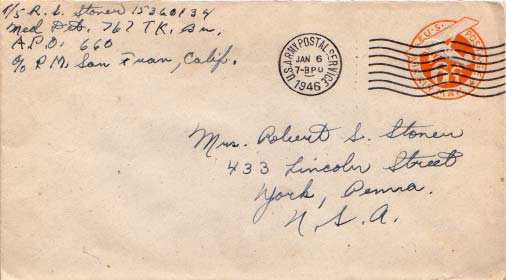 T/5 R. S. Stoner 15360134
Med Det. 767 TK. Bn.
A.P.O. 660
c/o P.M. San Fran, Calif.
U.S. ARMY POSTAL SERVICE
JAN 6
7-BPO
1946
U.S. POSTAGE
AIR MAIL
Mrs. Robert S. Stoner
433 Lincoln Street
York, Penna.
U.S.A.